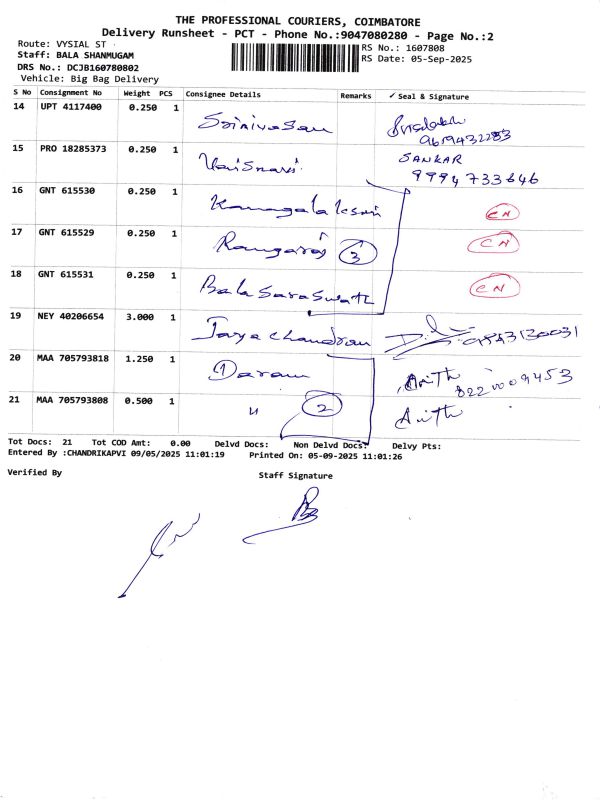 THE PROFESSIONAL COURIERS, COIMBATORE
Delivery Runsheet - PCT - Phone No.:9047080280 - Page No.:2
Route: VYSIAL ST
RS No.: 1607808
Staff: BALA SHANMUGAM
RS Date: 05-Sep-2025
DRS No.: DCJB160780802
Vehicle: Big Bag Delivery
S No Consignment No Weight PCS Consignee Details Remarks ✓ Seal & Signature
14 UPT 4117400 0.250 1 Srinivasan
9619432283
15 PRO 18285373 0.250 1 SANKAR
9994733646
16 GNT 615530 0.250 1 CN
17 GNT 615529 0.250 1 Rangaraj 3 CN
18 GNT 615531 0.250 1 Bala Saraswath CN
19 NEY 40206654 3.000 1 Jaya chandran
20 MAA 705793818 1.250 1
21 MAA 705793808 0.500 1 " 2
Tot Docs: 21 Tot COD Amt: 0.00 Delvd Docs: Non Delvd Docs: Delvy Pts:
Entered By :CHANDRIKAPVI 09/05/2025 11:01:19 Printed On: 05-09-2025 11:01:26
Verified By
Staff Signature